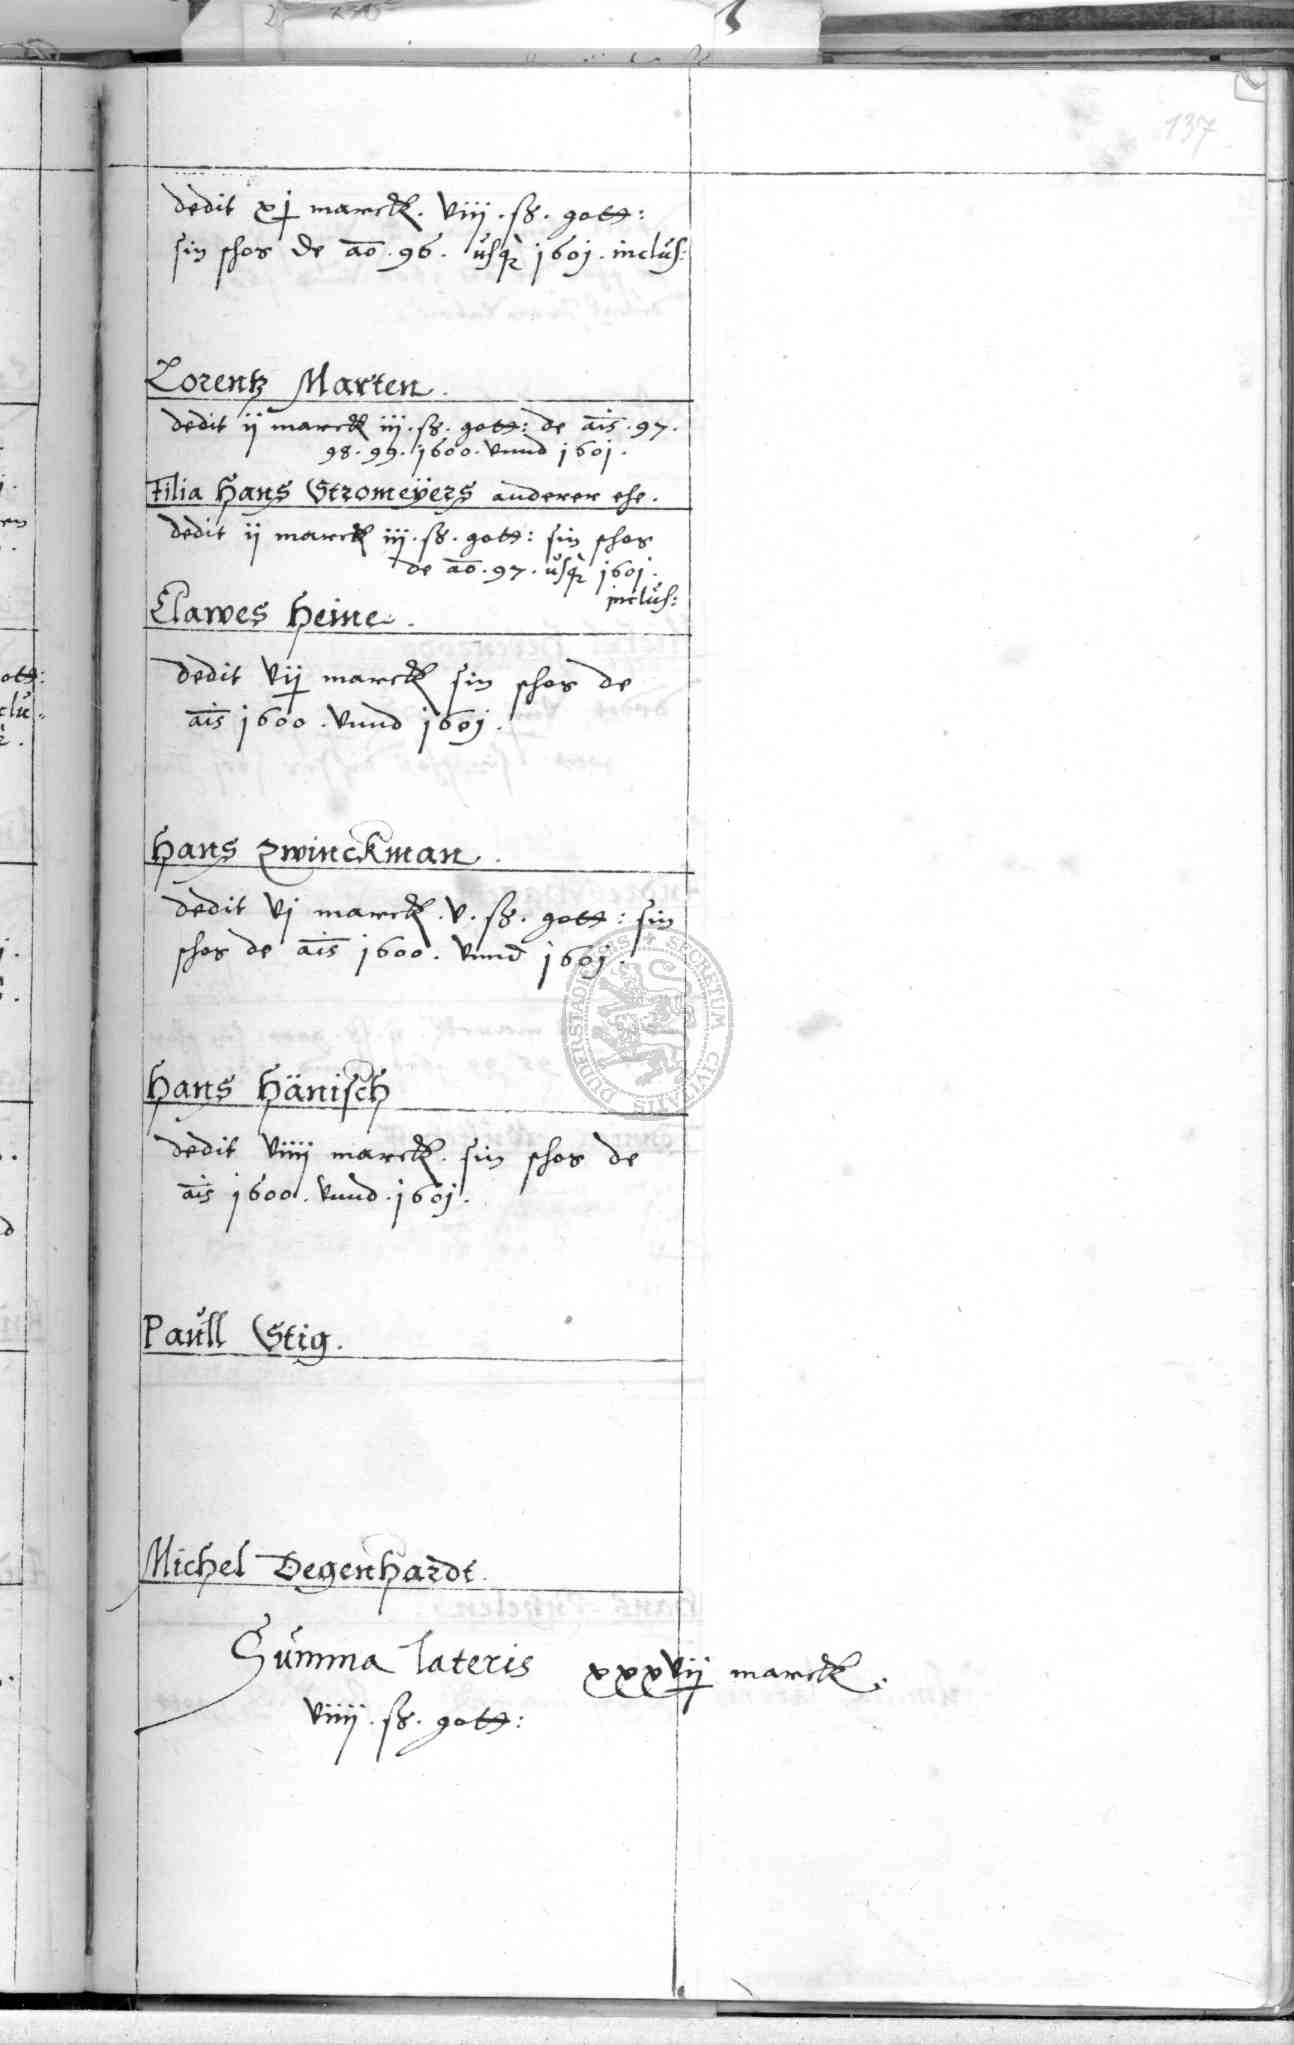 137
dedit xj marck. viij. ß. gott:
sin schos de ao. 96. usq 1601. inclus:
Lorentz Marten.
dedit ij marck iij. ß. gott: de ais. 97.
98. 99. 1600. vnnd 1601.
Filia Hans Stromeÿers anderer ehe.
dedit ij marck iij. ß. gott: sin schos
de ao. 97. usq 1601.
inclus:
Clawes Heine.
dedit vij marck sin schos de
ais 1600. vnnd 1601.
Hans Zwinckman.
dedit vj marck. v. ß. gott: sin
schos de ais 1600. vnnd 1601.
Hans Hänisch
dedit viiij marck. sin schos de
ais 1600. vnnd. 1601.
Paull Stig.
Michel Degenhardt.
Summa lateris xxxvij marck.
viiij. ß. gott:
SECRETUM CIVITATIS DUDERSTADIENSIS